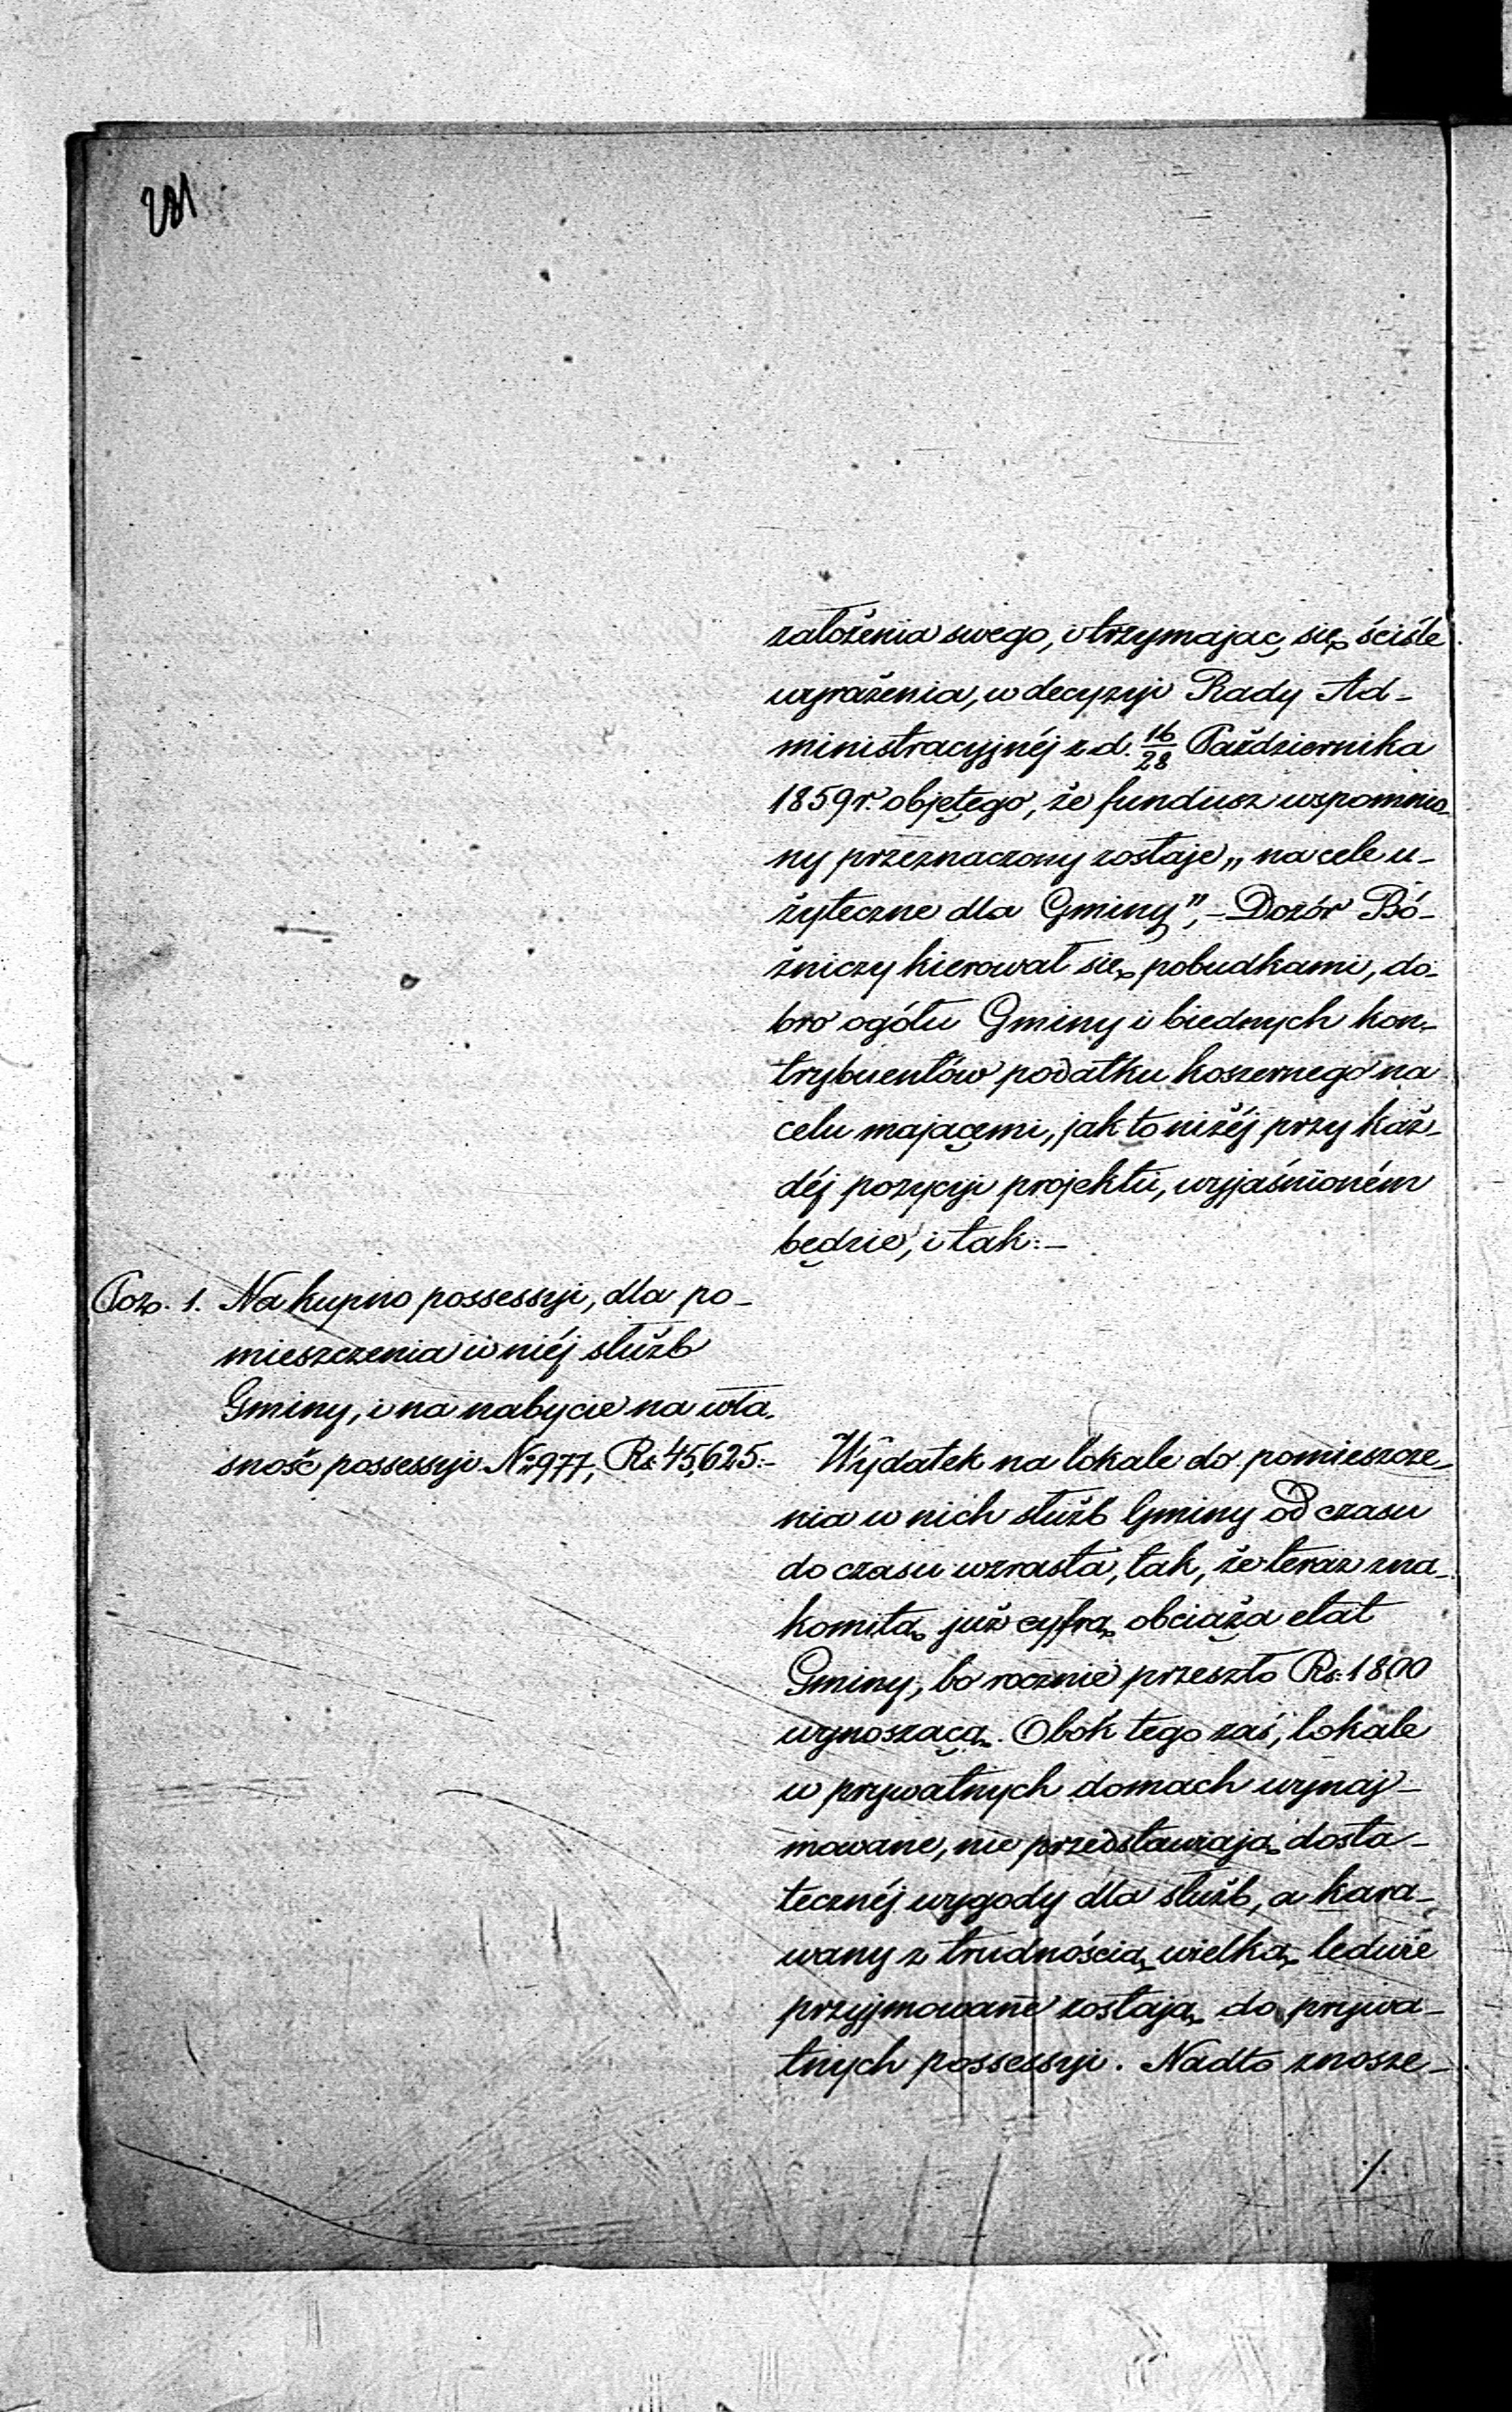 281
założenia swego, i trzymając się ściśle
wyrażenia, w decyzyi Rady Ad-
ministracyjnéj z d. 16/28 Października
1859 r. objętego, że fundusz wspomnio-
ny przeznaczony zostaje „na cele u-
żyteczne dla Gminy”, - Dozór Bó-
żniczy kierował się pobudkami, do-
bro ogółu Gminy i biednych kon-
trybuentów podatku koszernego na
celu mającemi, jak to niżéj przy każ-
déj pozycyi projektu, wyjaśnioném
będzie, i tak: -
Poz. 1. Na kupno possessyi, dla po-
mieszczenia w niéj służb
Gminy, i na nabycie na wła-
sność possessyi No 977, Rs. 45,625.-
Wydatek na lokale do pomieszcze-
nia w nich służb Gminy od czasu
do czasu wzrasta, tak, że teraz zna-
komitą już cyfrą obciąża etat
Gminy, bo rocznie przeszło Rs. 1800
wynoszącą. Obok tego zaś, lokale
w prywatnych domach wynaj-
mowane, nie przedstawiają dosta-
tecznéj wygody dla służb, a kara-
wany z trudnością wielką ledwie
przyjmowane zostają do prywa-
tnych possessyi. Nadto znosze-
./.